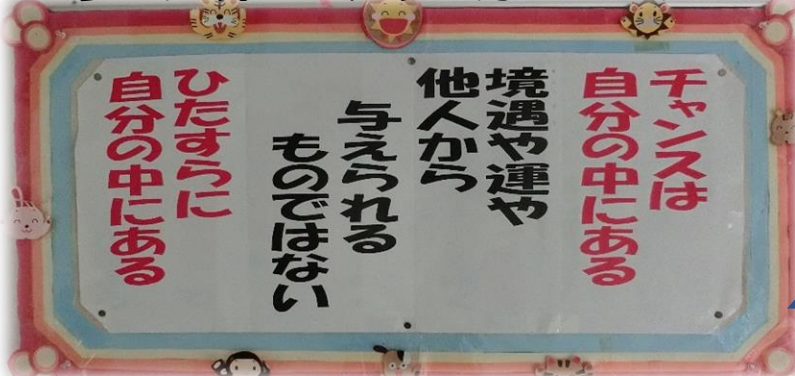 チャンスは
自分の中にある
境遇や運や
他人から
与えられる
ものではない
ひたすらに
自分の中にある